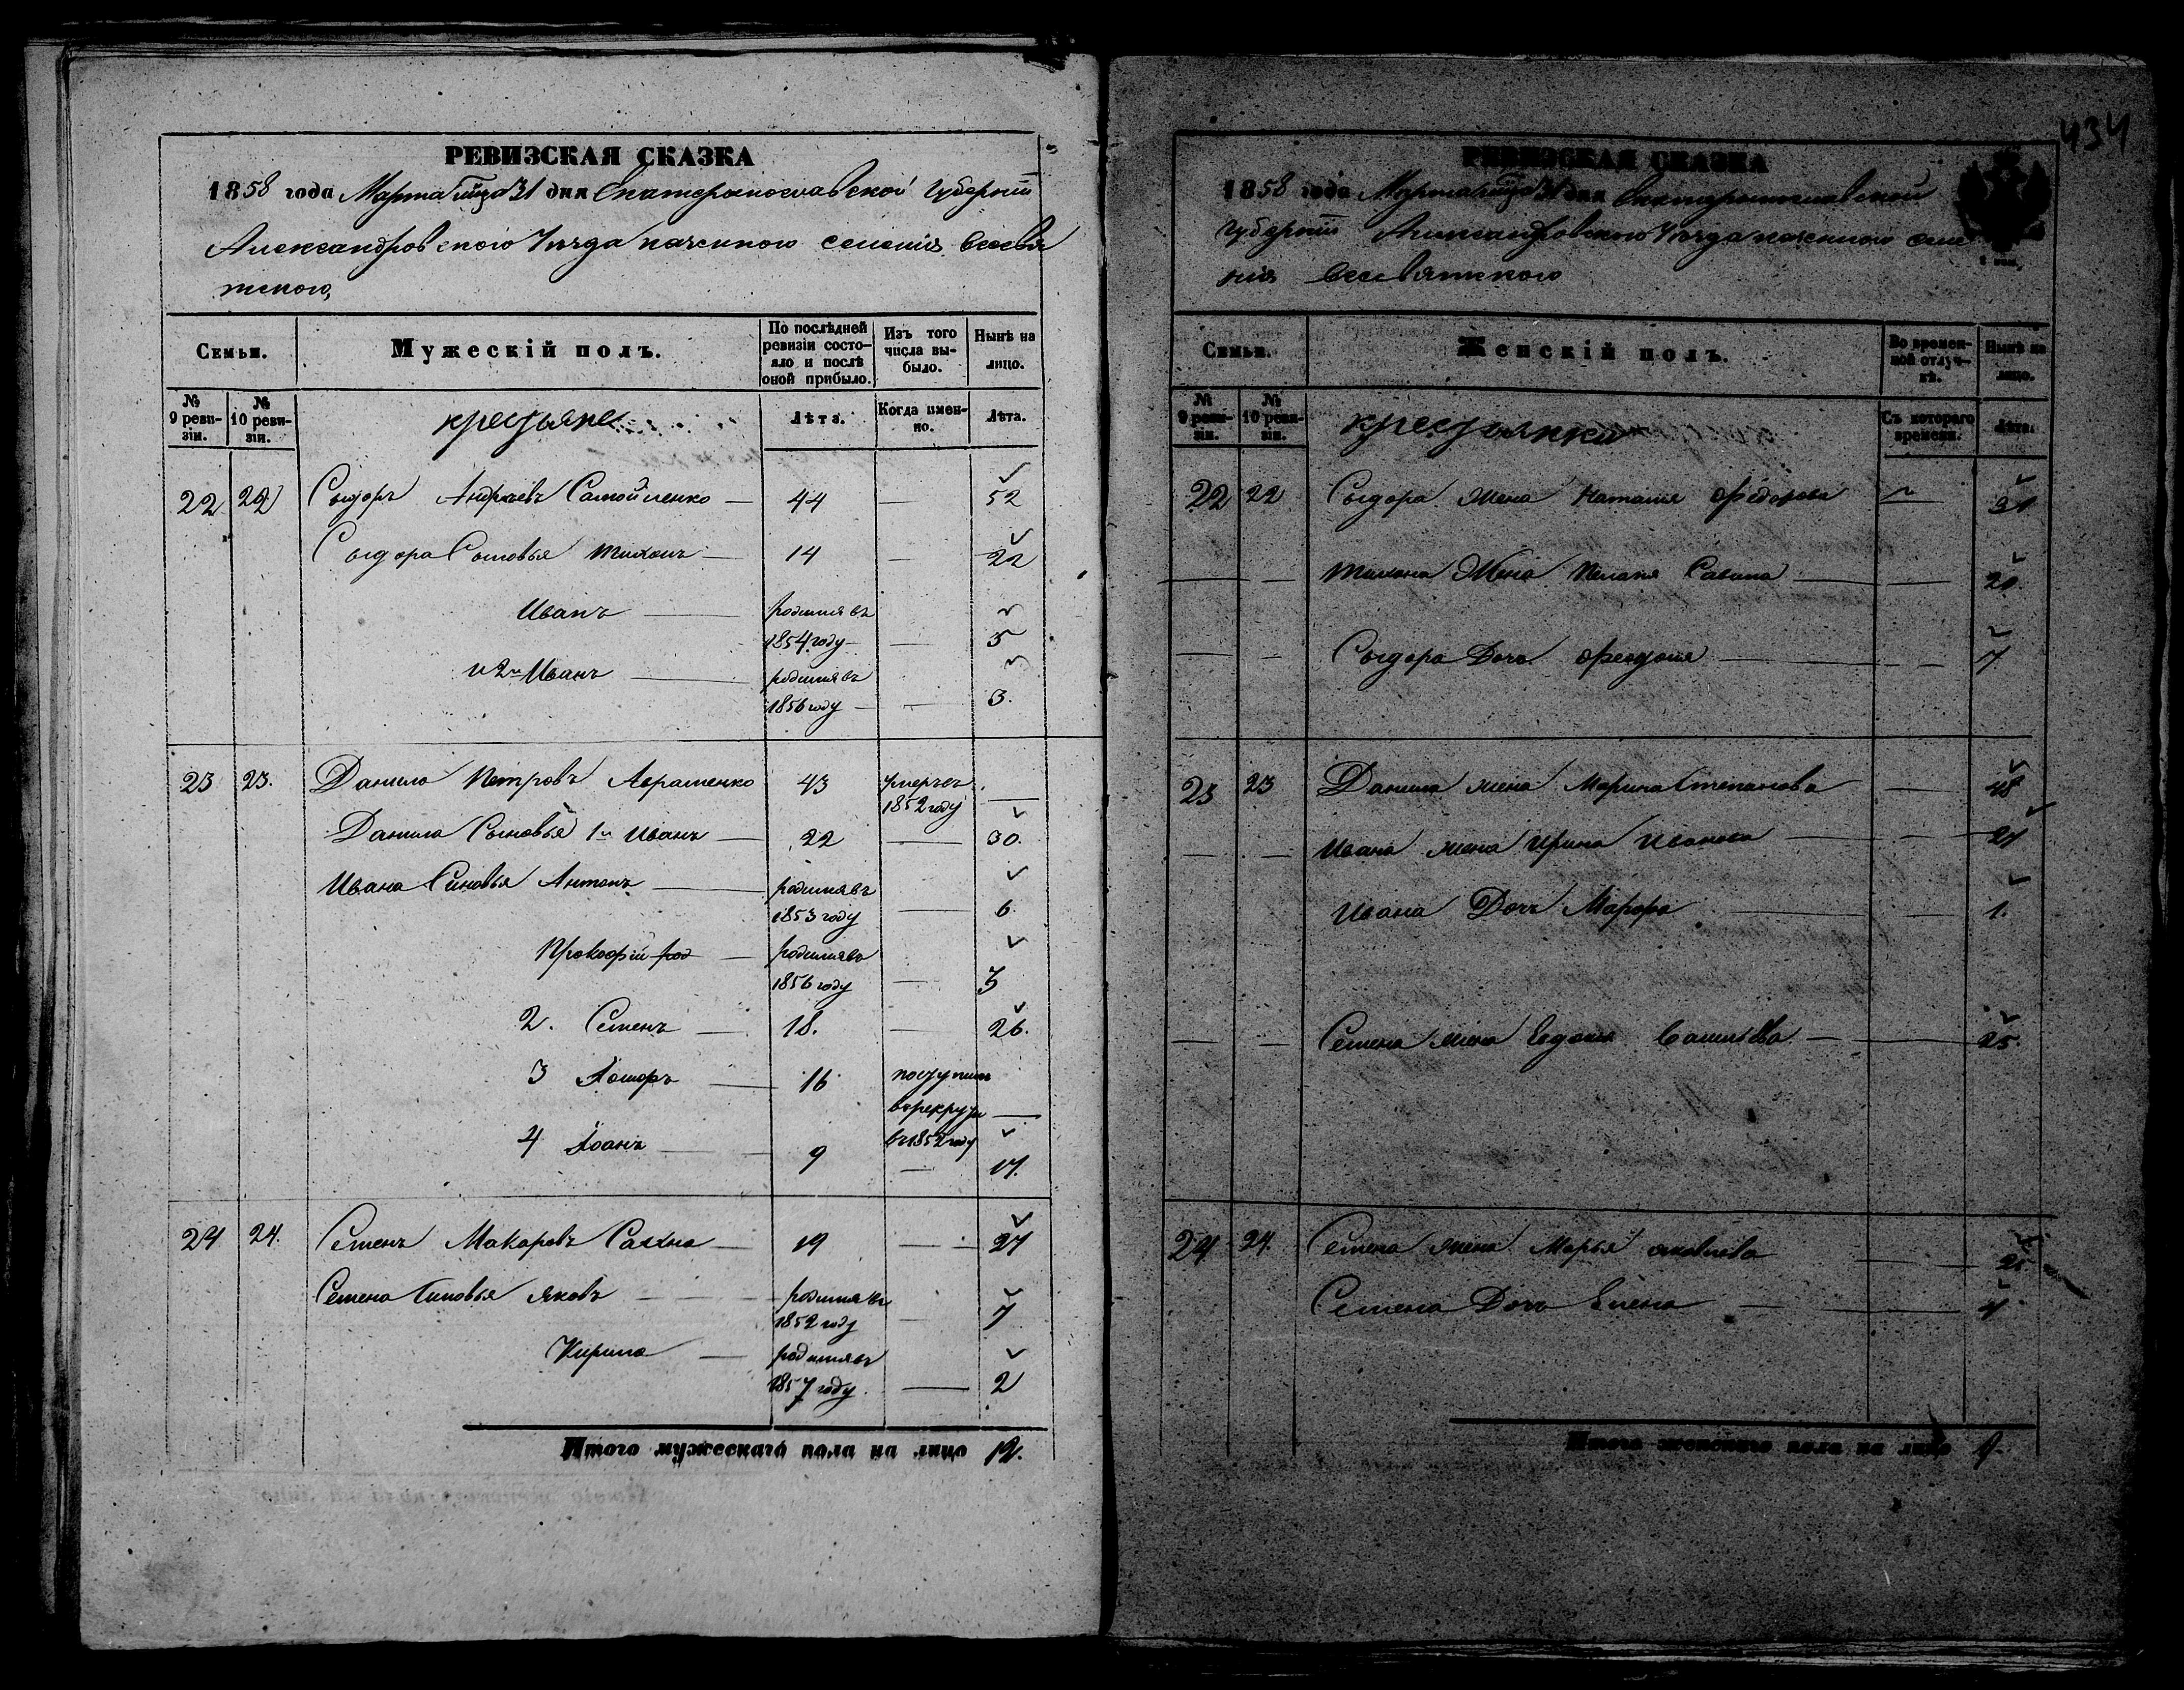 РЕВИЗСКАЯ СКАЗКА
1858 года Марта м-ца 31 дня Екатеринославской Губернии
Александровского Уезда казенного селения Всесвя
тского,
Семьи.
Мужескій полъ.
По послѣдней ревизіи состояло и послѣ оной прибыло.
Изъ того числа выбыло.
Нынѣ на лицо.
№ 9 ревизіи.
№ 10 ревизіи.
крестьяне
Лѣта.
Когда именно.
Лѣта.
22 22 Сыдоръ Андреевъ Самойленко — 44 — 52
Сыдора Сыновья Тихонъ — 14 — 22
Иванъ — родился въ
1854 году — 5
и 2й Иванъ — родился въ
1856 году — 3.
23 23. Данило Петровъ Авраменко 43 умръ въ
1852 году —
Данила Сыновья 1й Иванъ — 22 — 30.
Ивана Сыновья Антонъ — родился въ
1853 году — 6.
Прокофій род — родился въ
1856 году — 3
2. Семенъ — 18. — 26.
3 — 16 поступилъ
в рекруты —
въ 1852 году
4 — 9 — 17.
24 24. Семенъ Макаровъ Сахно — 19 — 27
Семена Сыновья Яковъ — родился въ
1852 году — 7
Кирило — родился въ
1857 году — 2
Итого мужескаго пола на лицо 12.
434
РЕВИЗСКАЯ СКАЗКА
1858 года Марта м-ца 31 дня Екатеринославской
Губернии Александровского Уезда казенного селе
ния Всесвятского
Семьи.
Женскій полъ.
Во временной отлучкѣ.
Нынѣ на лицо.
№ 9 ревизіи.
№ 10 ревизіи.
крестьянки
Съ котораго времени.
Лѣта.
22 22 Сыдора жена Наталия Федорова —
— — Тихона Жена Пелагия Савина — — 20.
— — Сыдора Дочь Феодосия — — 7
23 23 Данила жена Марина Степанова — 48
— — Ивана жена Ирина Иванова — — 27
Ивана Дочь Марфа — — 1.
— — Семена жена Евдокия Васильева — — 25.
24 24. Семена жена Марья Яковлева —
Семена Дочь Елена — — 4
Итого женскаго пола на лицо 9.